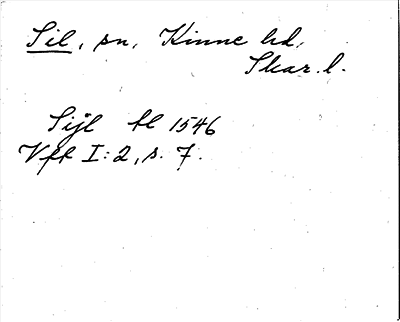 Sil, sn, Kinne hd,
Skar. l.
Sijl tl 1546
Vfk I:2, s. 7.